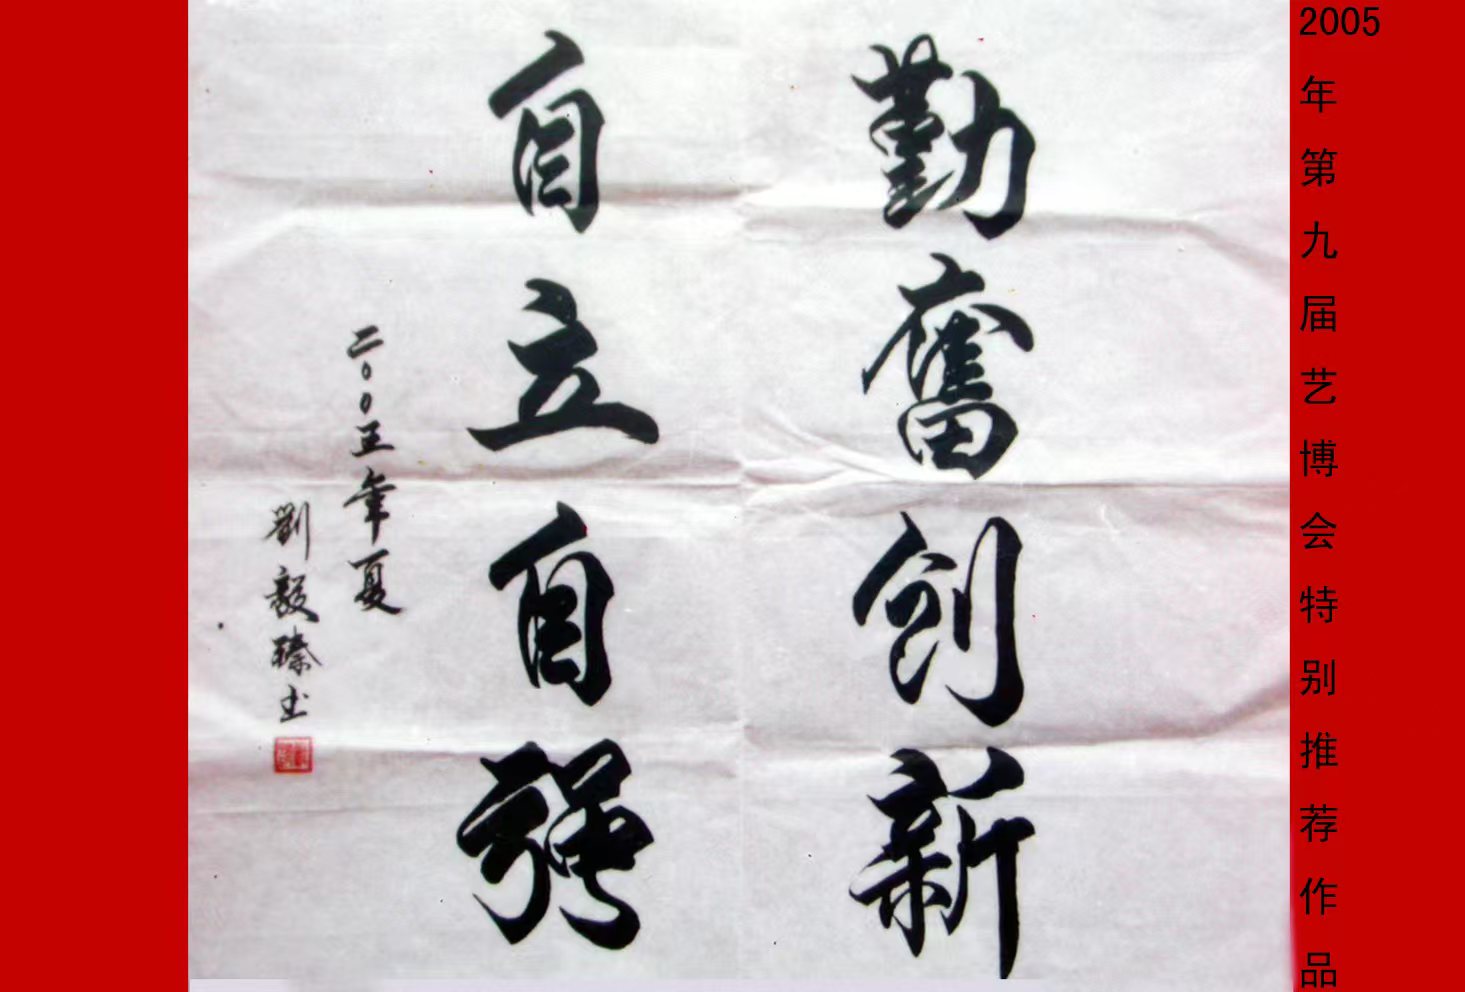 2005年第九届艺博会特别推荐作品
勤奮創新
自立自强
二〇〇五年夏
劉毅臻书